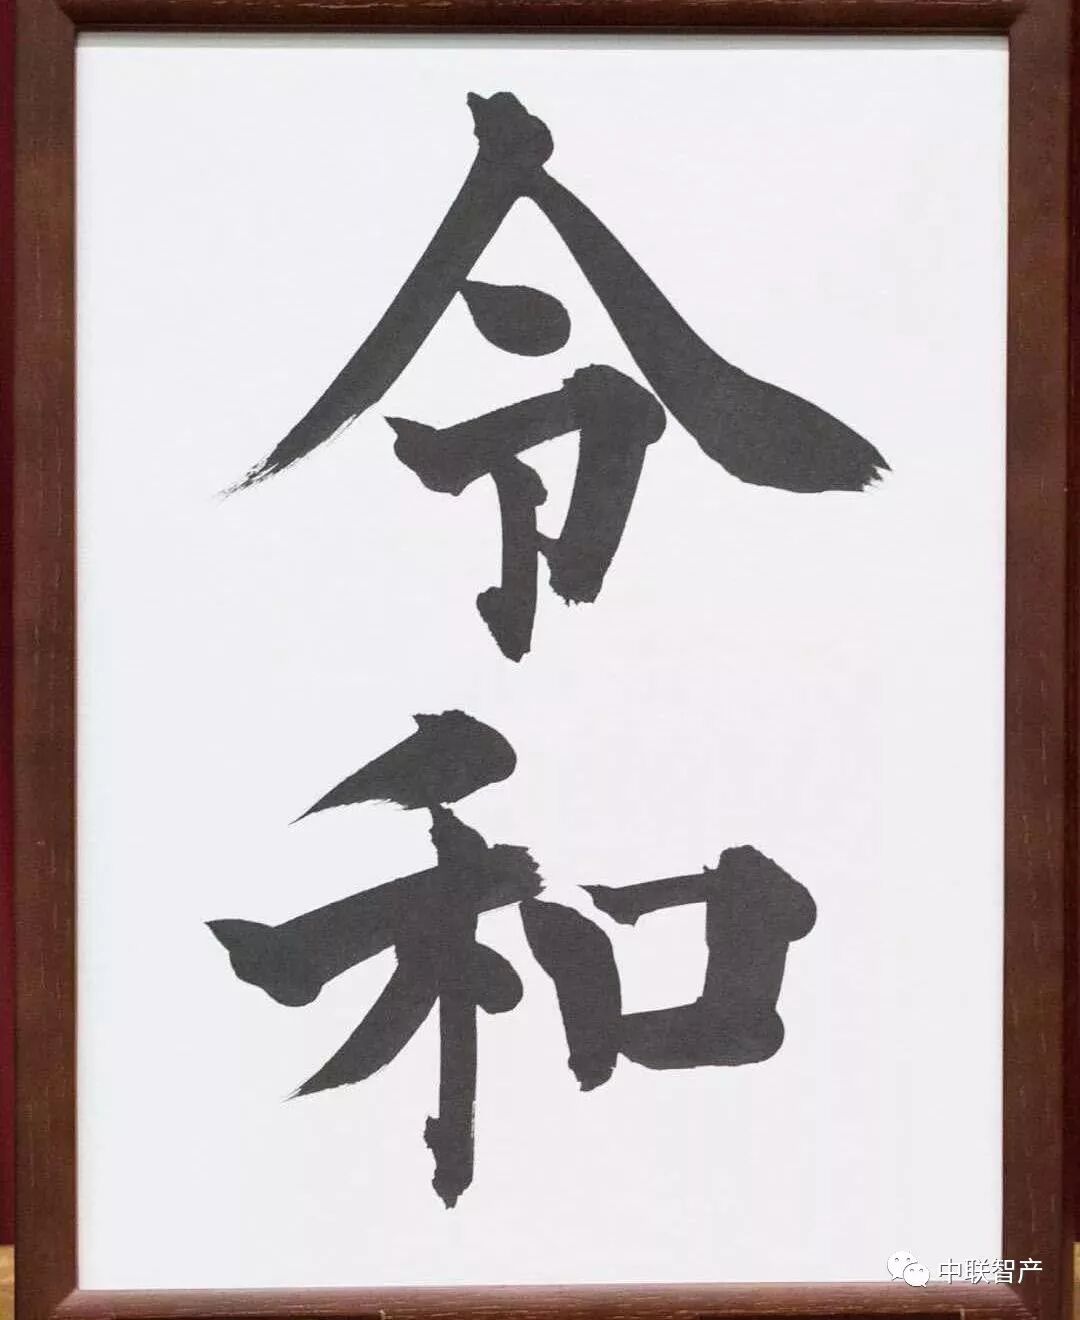 令和
中联智产